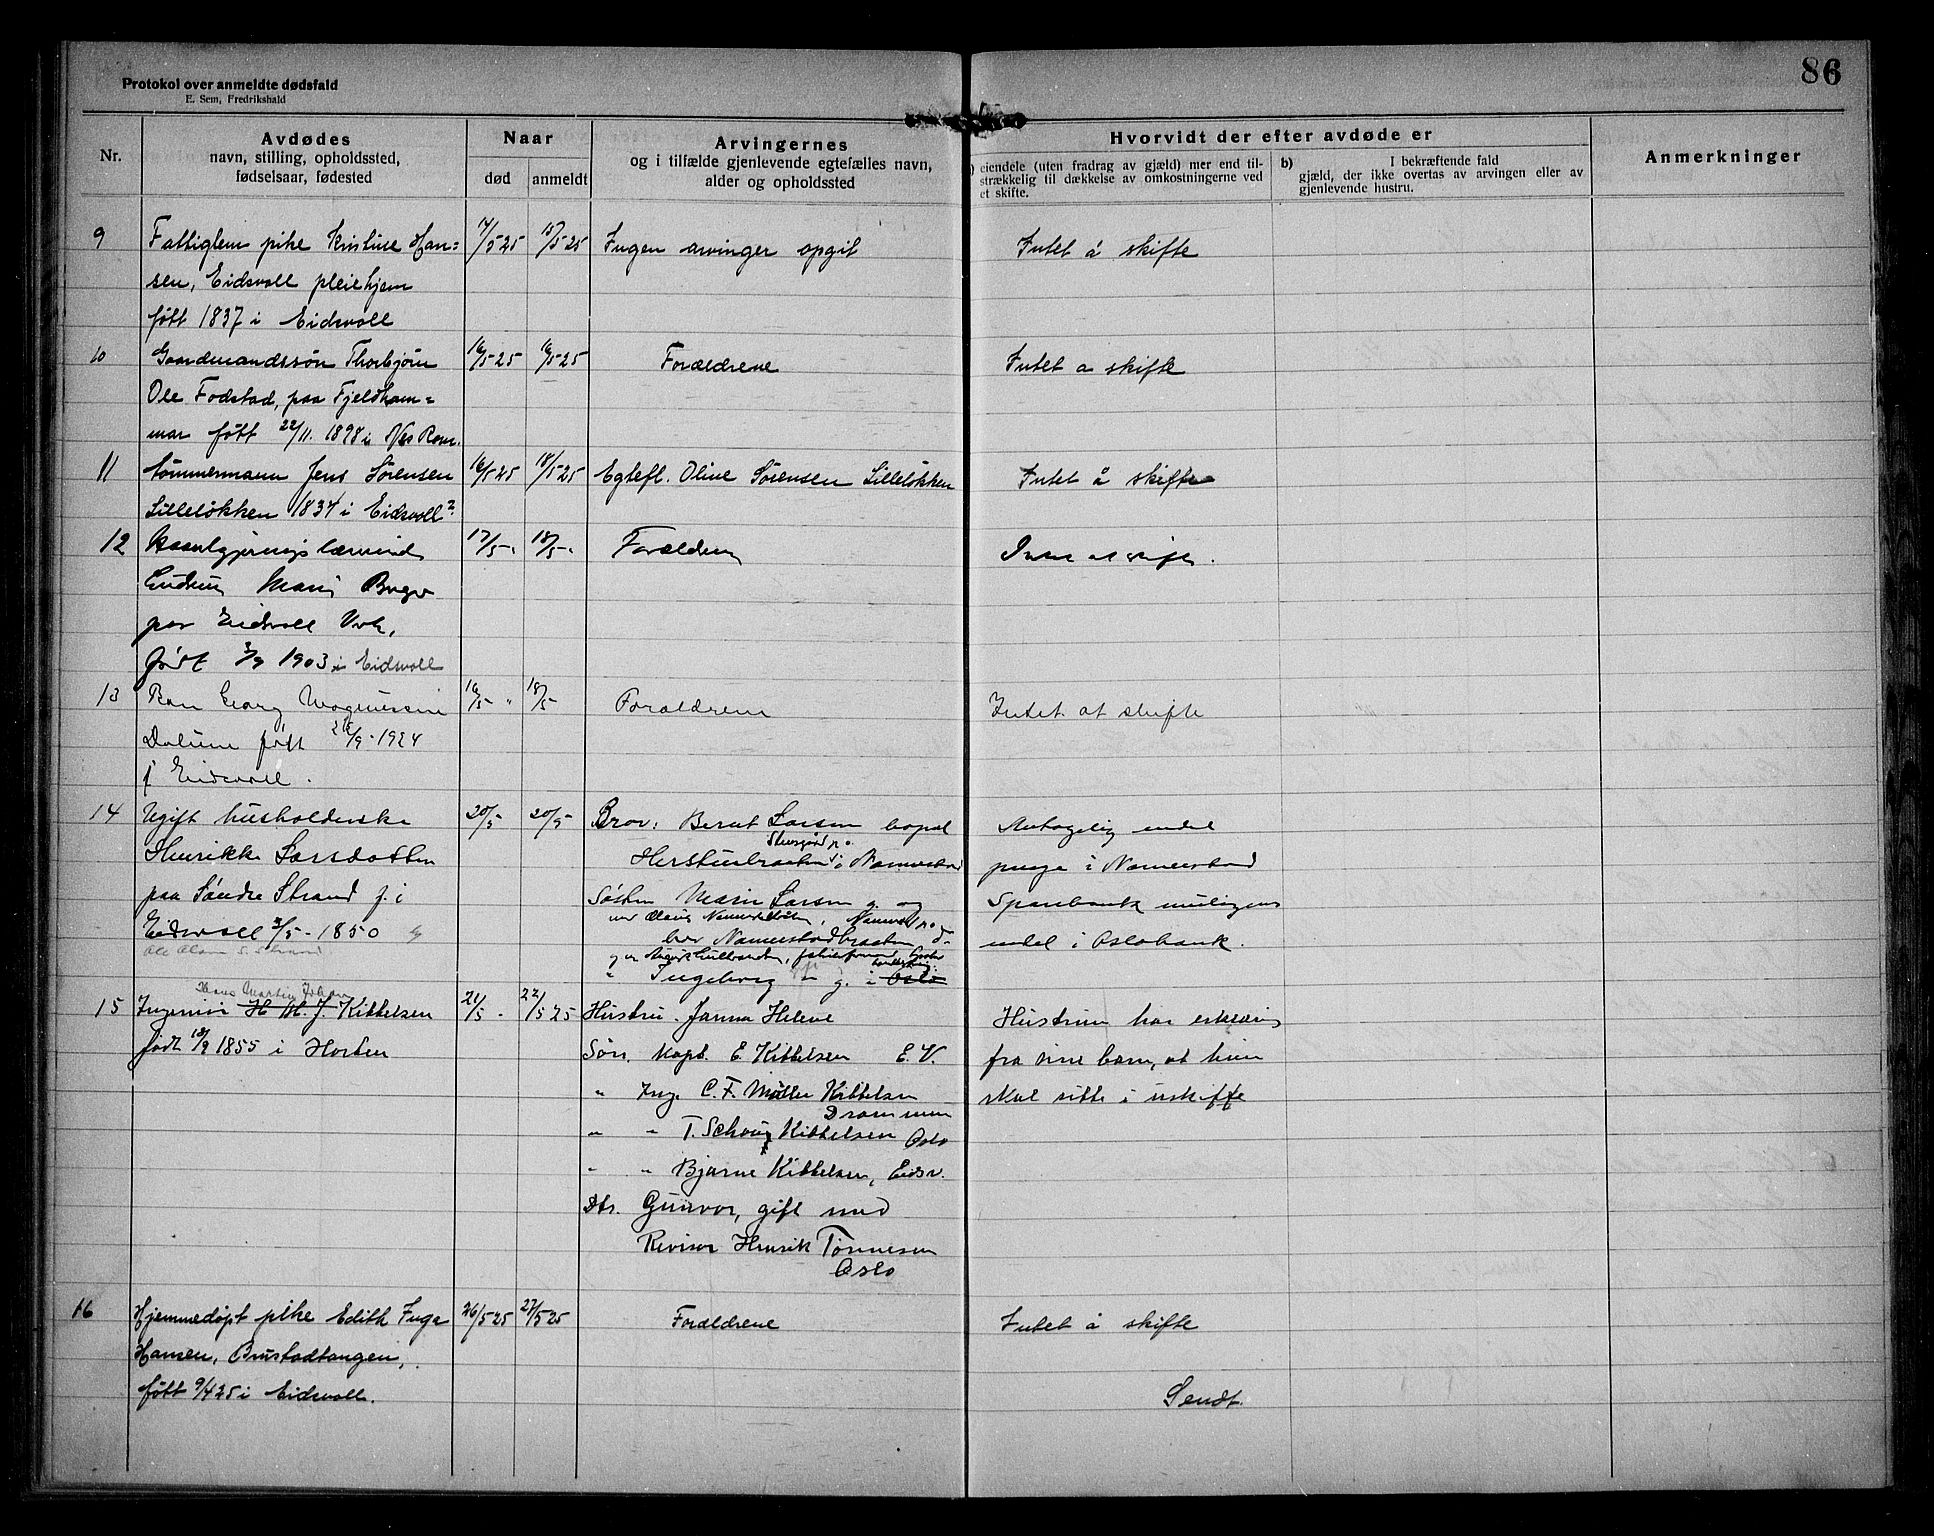 86
Protokol over anmeldte dødsfald
E. Sem, Fredrikshald
Nr.
Avdødes
navn, stilling, opholdssted,
fødselsaar, fødested
Naar
død
anmeldt
Arvingernes
og i tilfælde gjenlevende egtefælles navn,
alder og opholdssted
Hvorvidt der efter avdøde er
eiendele (uten fradrag av gjæld) mer end til-
strækkelig til dækkelse av omkostningerne ved
et skifte.
b) I bekræftende fald
gjæld, der ikke overtas av arvingen eller av
gjenlevende hustru.
Anmerkninger
9 Fattiglem pike Kristine Han= 14/5 25 15/5 25 Ingen arvinger opgit Intet å skifte
sen, Eidsvoll pleiehjem
født 1837 i Eidsvoll
10 Gaardmandssøn Thorbjørn 16/5 25 16/5 25 Forældrene Intet a skifte
Ole Fodstad, paa Fjeldham=
mar født 22/11. 1898 i Nes Rom.
11 Tømmermann Jens Sørensen 16/5 25 18/5 25 Egtefl. Oline Sørensen Lilleløkken Intet å skifte
Lilleløkken 1834 i Eidsvoll?
12 17/5 " 18/5 "
Marie
paa Eidsvoll Verk,
født 3/9 1903 i Eidsvoll
13 Barn Georg Magnussen 16/5 " 18/5 Forældrene Intet at skifte
født 1924
i Eidsvoll.
14 Ugift husholderske 20/5 20/5 Bror: Bernt Larsen
Henrikke Larsdatter
i Namnestad
paa Søndre Strand f. i Søster Marie Larsen g.
Eidsvoll 3/5 - 1850
Antagelig endel
penge i Namnestad
Sparebank muligens
endel i Oslobank.
" Ingeborg g. i Oslo
Hans Martin Johan
15 Ingeniør H. M. J. Kittelsen 21/5 - 22/5 25 Hustru. Janna Helene Hustruen har erklæring
født 18/9 1855 i Horten Søn. Kapt. E. Kittelsen E.V. fra sine barn, at hun
" Ing. C. F. Müller Kittelsen skal sitte i uskifte
Drammen
" " T. Schou Kittelsen Oslo
" " Bjarne Kittelsen, Eidsv.
Dtr. Gunvor, gift med
Revisor Henrik Tønnesen
Oslo
16 Hjemmedøpt pike Edith Inga 26/5 25 27/5 25 Forældrene Intet å skifte
Hansen, Brustadtangen,
født 9/4 25 i Eidsvoll.
Sendt.